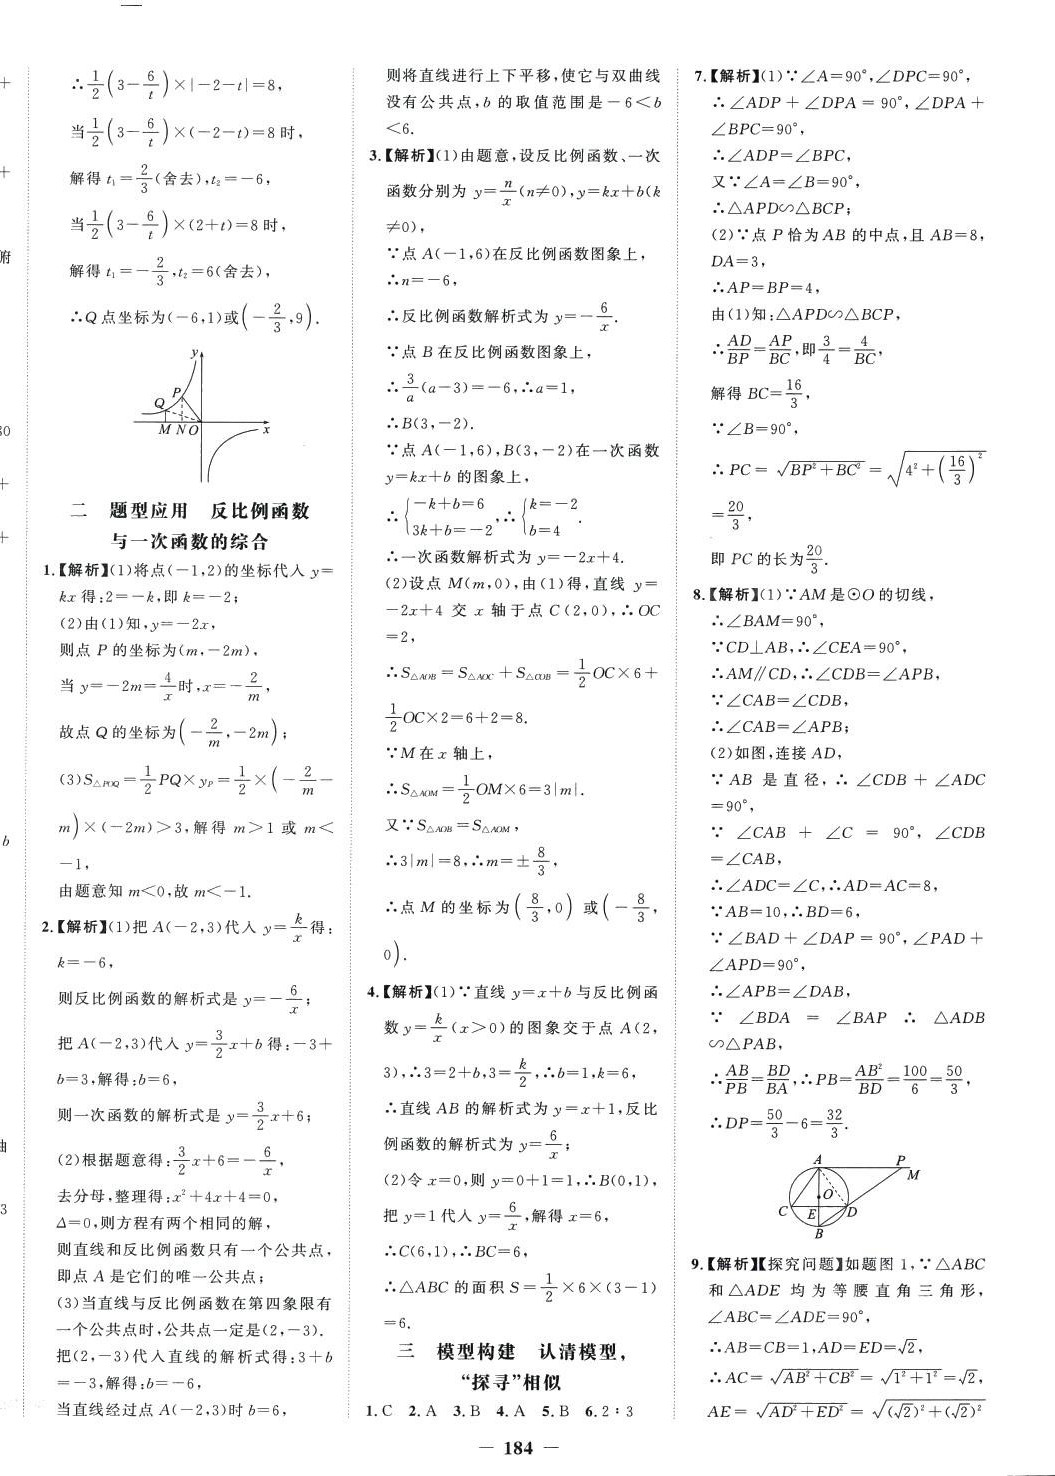 ∴1/2(3－6/t)×|－2－t|＝8，
当1/2(3－6/t)×(－2－t)＝8时，
解得t₁＝2/3(舍去)，t₂＝－6，
当1/2(3－6/t)×(2＋t)＝8时，
解得t₁＝－2/3，t₂＝6(舍去)，
∴Q点坐标为(－6，1)或(－2/3，9).
y
P
Q
M N O x
二 题型应用 反比例函数
与一次函数的综合
1.【解析】(1)将点(－1，2)的坐标代入y＝
kx得：2＝－k，即k＝－2；
(2)由(1)知，y＝－2x，
则点P的坐标为(m，－2m)，
当y＝－2m＝4/x时，x＝－2/m，
故点Q的坐标为(－2/m，－2m)；
(3)S△POQ＝1/2PQ×yP＝1/2×(－2/m－
m)×(－2m)＞3，解得m＞1或m＜
－1，
由题意知m＜0，故m＜－1.
2.【解析】(1)把A(－2，3)代入y＝k/x得：
k＝－6，
则反比例函数的解析式是y＝－6/x；
把A(－2，3)代入y＝3/2x＋b得：－3＋
b＝3，解得：b＝6，
则一次函数的解析式是y＝3/2x＋6；
(2)根据题意得：3/2x＋6＝－6/x，
去分母，整理得：x²＋4x＋4＝0，
Δ＝0，则方程有两个相同的解，
则直线和反比例函数只有一个公共点，
即点A是它们的唯一公共点；
(3)当直线与反比例函数在第四象限有
一个公共点时，公共点一定是(2，－3).
把(2，－3)代入直线的解析式得：3＋b
＝－3，解得：b＝－6，
当直线经过点A(－2，3)时b＝6，
则将直线进行上下平移，使它与双曲线
没有公共点，b的取值范围是－6＜b
＜6.
3.【解析】(1)由题意，设反比例函数、一次
函数分别为y＝n/x(n≠0)，y＝kx＋b(k
≠0)，
∵点A(－1，6)在反比例函数图象上，
∴n＝－6，
∴反比例函数解析式为y＝－6/x.
∵点B在反比例函数图象上，
∴3/a(a－3)＝－6，∴a＝1，
∴B(3，－2).
∵点A(－1，6)，B(3，－2)在一次函数
y＝kx＋b的图象上，
∴{－k＋b＝6 3k＋b＝－2，∴{k＝－2 b＝4.
∴一次函数解析式为y＝－2x＋4.
(2)设点M(m，0)，由(1)得，直线y＝
－2x＋4交x轴于点C(2，0)，∴OC
＝2，
∴S△AOB＝S△AOC＋S△COB＝1/2OC×6＋
1/2OC×2＝6＋2＝8.
∵M在x轴上，
∴S△AOM＝1/2OM×6＝3|m|.
又∵S△AOB＝S△AOM，
∴3|m|＝8，∴m＝±8/3，
∴点M的坐标为(8/3，0)或(－8/3，
0).
4.【解析】(1)∵直线y＝x＋b与反比例函
数y＝k/x(x＞0)的图象交于点A(2，
3)，∴3＝2＋b，3＝k/2，∴b＝1，k＝6，
∴直线AB的解析式为y＝x＋1，反比
例函数的解析式为y＝6/x；
(2)令x＝0，则y＝0＋1＝1，∴B(0，1)，
把y＝1代入y＝6/x，解得x＝6，
∴C(6，1)，∴BC＝6，
∴△ABC的面积S＝1/2×6×(3－1)
＝6.
三 模型构建 认清模型，
“探寻”相似
1.C 2.A 3.B 4.A 5.B 6.2∶3
7.【解析】(1)∵∠A＝90°，∠DPC＝90°，
∴∠ADP＋∠DPA＝90°，∠DPA＋
∠BPC＝90°，
∴∠ADP＝∠BPC，
又∵∠A＝∠B＝90°，
∴△APD∽△BCP；
(2)∵点P恰为AB的中点，且AB＝8，
DA＝3，
∴AP＝BP＝4，
由(1)知：△APD∽△BCP，
∴AD/BP＝AP/BC，即3/4＝4/BC，
解得BC＝16/3，
∵∠B＝90°，
∴PC＝√(BP²＋BC²)＝√(4²＋(16/3)²)
＝20/3，
即PC的长为20/3.
8.【解析】(1)∵AM是⊙O的切线，
∴∠BAM＝90°，
∵CD⊥AB，∴∠CEA＝90°，
∴AM∥CD，∴∠CDB＝∠APB，
∵∠CAB＝∠CDB，
∴∠CAB＝∠APB；
(2)如图，连接AD，
∵AB是直径，∴∠CDB＋∠ADC
＝90°，
∵∠CAB＋∠C＝90°，∠CDB
＝∠CAB，
∴∠ADC＝∠C，∴AD＝AC＝8，
∵AB＝10，∴BD＝6，
∵∠BAD＋∠DAP＝90°，∠PAD＋
∠APD＝90°，
∴∠APB＝∠DAB，
∵∠BDA＝∠BAP ∴△ADB
∽△PAB，
∴AB/PB＝BD/BA，∴PB＝AB²/BD＝100/6＝50/3，
∴DP＝50/3－6＝32/3.
A P
M
O
C E D
B
9.【解析】【探究问题】如题图1，∵△ABC
和△ADE均为等腰直角三角形，
∠ABC＝∠ADE＝90°，
∴AB＝CB＝1，AD＝ED＝√2，
∴AC＝√(AB²＋CB²)＝√(1²＋1²)＝√2，
AE＝√(AD²＋ED²)＝√((√2)²＋(√2)²)
— 184 —